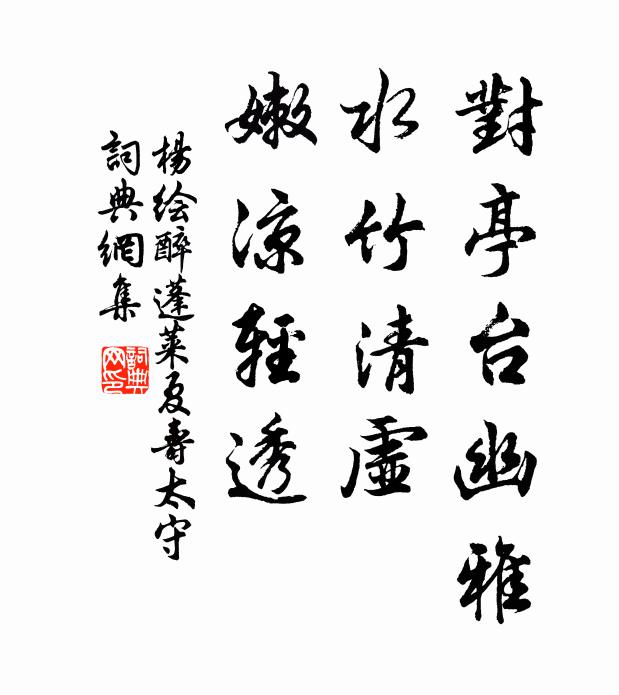 對亭台幽雅
水竹清虛
嫩涼輕透
楊绘醉蓬萊夏壽太守
詞典網集
詞典网印